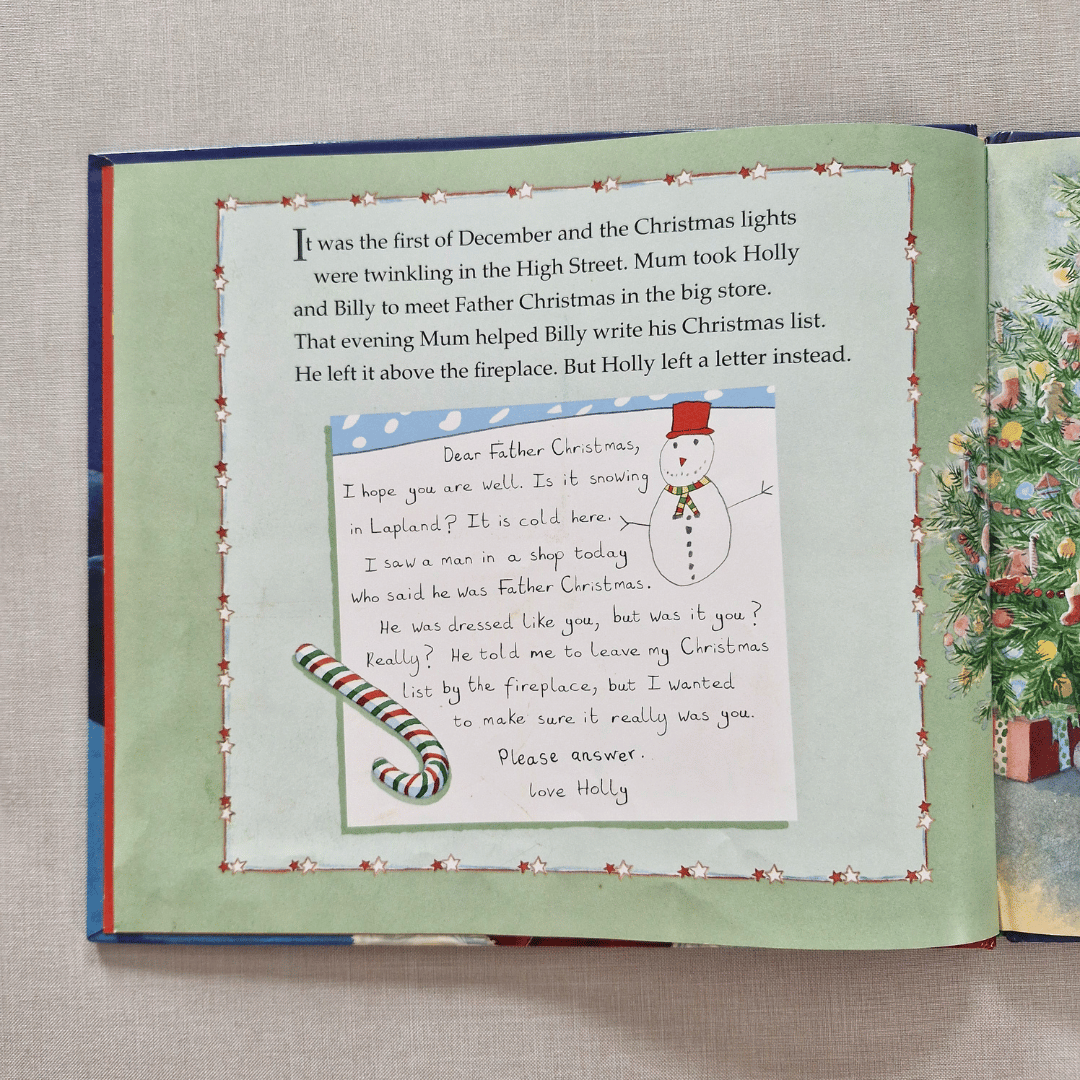 It was the first of December and the Christmas lights
were twinkling in the High Street. Mum took Holly
and Billy to meet Father Christmas in the big store.
That evening Mum helped Billy write his Christmas list.
He left it above the fireplace. But Holly left a letter instead.
Dear Father Christmas,
I hope you are well. Is it snowing
in Lapland? It is cold here.
I saw a man in a shop today
who said he was Father Christmas.
He was dressed like you, but was it you?
Really? He told me to leave my Christmas
list by the fireplace, but I wanted
to make sure it really was you.
Please answer.
love Holly